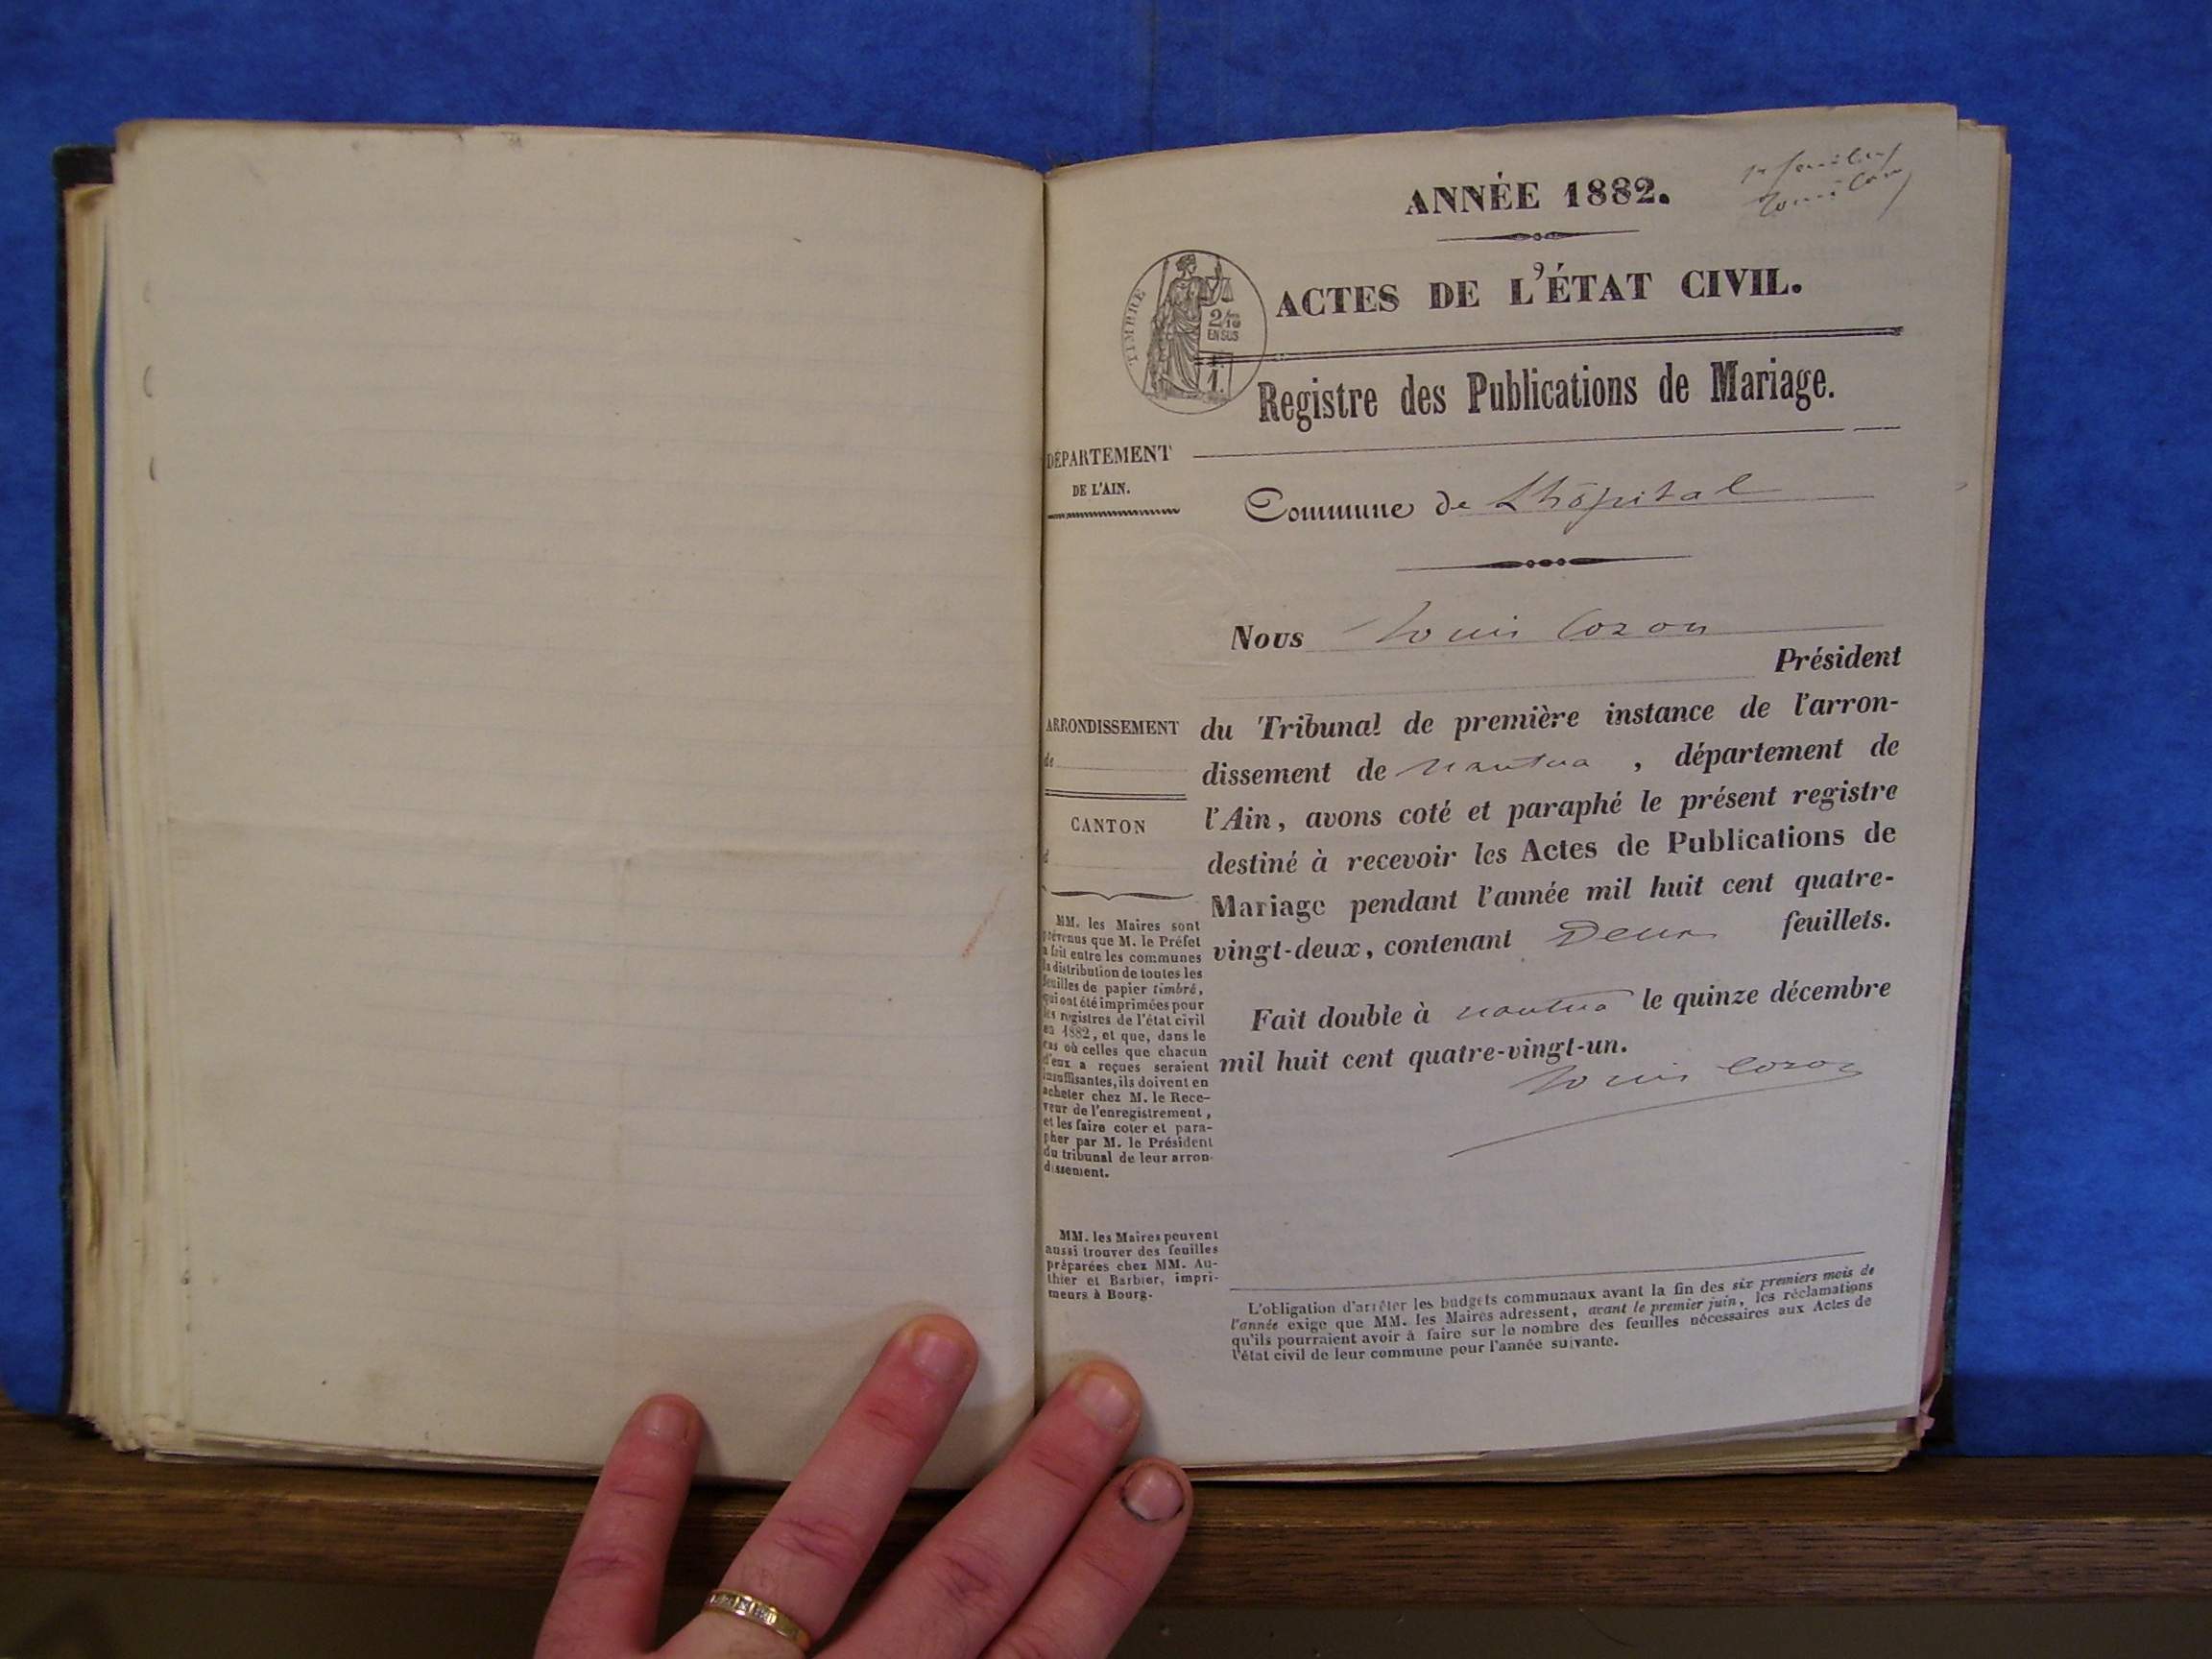 ANNÉE 1882.
1er feuillet
Louis Cozon
TIMBRE
2/10
EN SUS
1.
ACTES DE L'ÉTAT CIVIL.
Registre des Publications de Mariage.
DÉPARTEMENT
DE L'AIN.
Commune de Lhôpital
Nous Louis Cozon
Président
ARRONDISSEMENT
de
CANTON
d
du Tribunal de première instance de l'arron-
dissement de nantua, département de
l'Ain, avons coté et paraphé le présent registre
destiné à recevoir les Actes de Publications de
Mariage pendant l'année mil huit cent quatre-
vingt-deux, contenant Deux feuillets.
Fait double à nantua le quinze décembre
mil huit cent quatre-vingt-un.
Louis Cozon
MM. les Maires sont
prévenus que M. le Préfet
a fait entre les communes
la distribution de toutes les
feuilles de papier timbré,
qui ont été imprimées pour
les registres de l'état civil
en 1882, et que, dans le
cas où celles que chacun
d'eux a reçues seraient
insuffisantes, ils doivent en
acheter chez M. le Rece-
veur de l'enregistrement,
et les faire coter et para-
pher par M. le Président
du tribunal de leur arron-
dissement.
MM. les Maires peuvent
aussi trouver des feuilles
préparées chez MM. Au-
thier et Barbier, impri-
meurs à Bourg.
L'obligation d'arrêter les budgets communaux avant la fin des six premiers mois de
l'année exige que MM. les Maires adressent, avant le premier juin, les réclamations
qu'ils pourraient avoir à faire sur le nombre des feuilles nécessaires aux Actes de
l'état civil de leur commune pour l'année suivante.